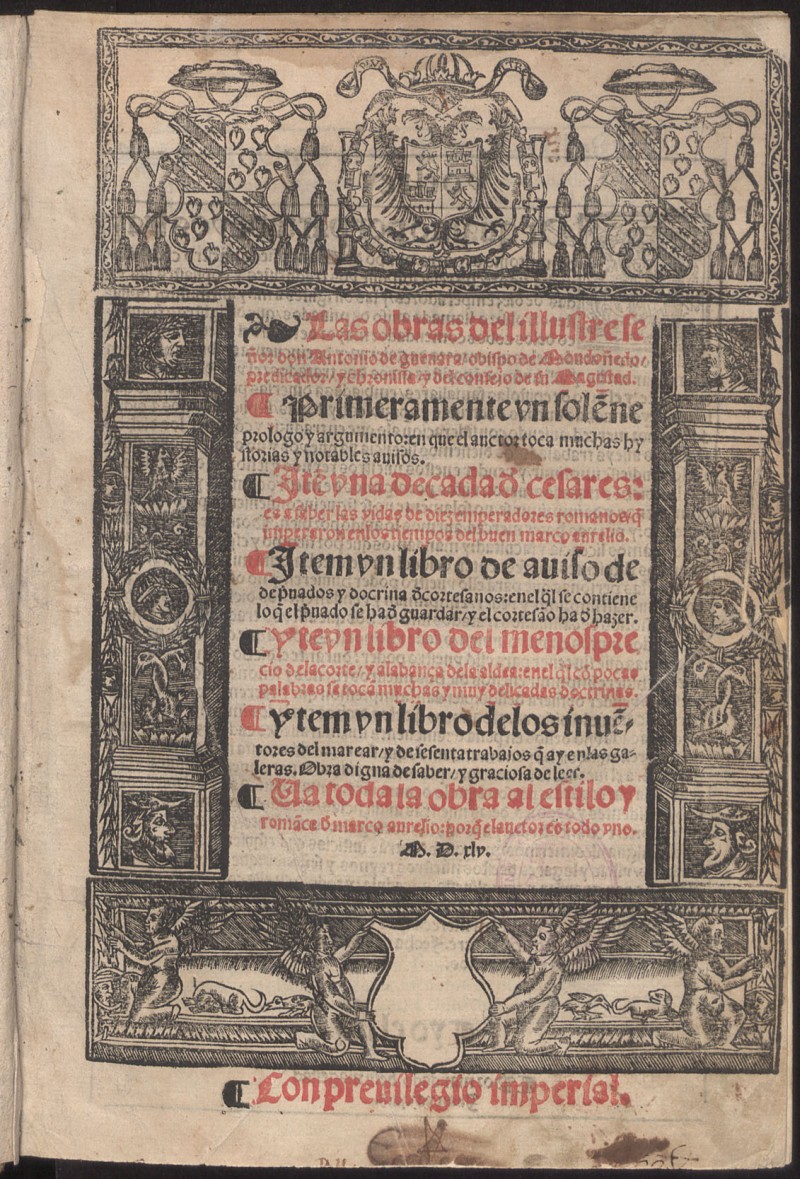 Las obras del illustre se
ñor don Antonio de gueuara / obispo de Mondoñedo /
predicador / y chronista / y del consejo de su Magestad.
¶ Primeramente vn solẽne
prologo y argumento: en que el auctor toca muchas hy
storias y notables auisos.
¶ Jtẽ vna decada đ cesares:
es a saber las vidas de diez emperadores romanos / q̃
imperaron enlos tiempos del buen marco aurelio.
¶ Jtem vn libro de auiso de
de p̃uados y docrina đ cortesanos: enel q̃l se contiene
lo q̃ el p̃uado se ha đ guardar / y el cortesão ha đ hazer.
¶ Yteɱ vn libro del menospre
cio de la corte / y alabança dela aldea: enel q̃l cõ pocas
palabras se tocã muchas y muy delicadas doctrinas.
¶ Ytem vn libro delos inuẽ-
tores del marear / y de sesenta trabajos q̃ ay enlas ga-
leras. Obra digna de saber / y graciosa de leer.
¶ Ua toda la obra al estilo y
romãce đ marco aurelio: porq̃ el auctor es todo vno.
M. D. xlv.
¶ Con preuilegio imperial.